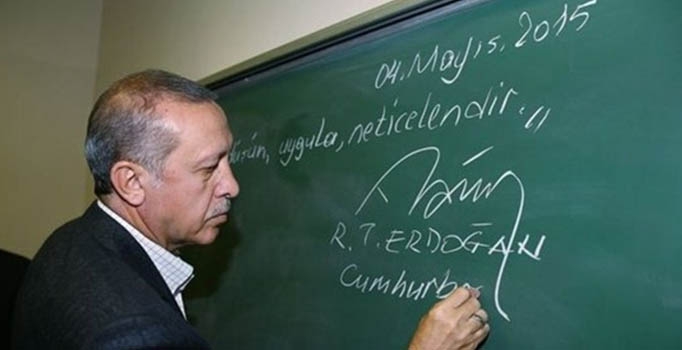 04. Mayıs. 2015
uygula, neticelendir.,,
R. T. ERDOĞAN
Cumhurba